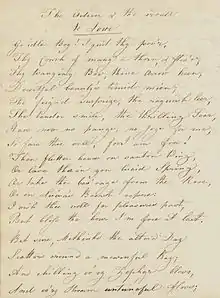 The Adieu & the recall
to Love
Go idle Boy! I quit thy pow'r;
Thy Couch of many a thorn & flow'r;
Thy twanging Bow, thine Arrow keen,
Deceitful beauty's timid mien;
The feign'd surprize, the roguish leer,
The tender smile, the thrilling Tear,
Have now no pangs, no joys for me,
So fare thee well, for I am free!
Then flutter hence on wanton Wing,
Or lave thee in yon lucid Spring,
Or take thy bev'rage from the Rose,
Or on Louisa's Breast repose:
I wish thee well for pleasures past,
But bless the hour, I'm free at last.
But sure, Methinks the alter'd Day
Scatters around a mournful Ray;
And chilling ev'ry Zephyr blows,
And ev'ry Stream untuneful flows;